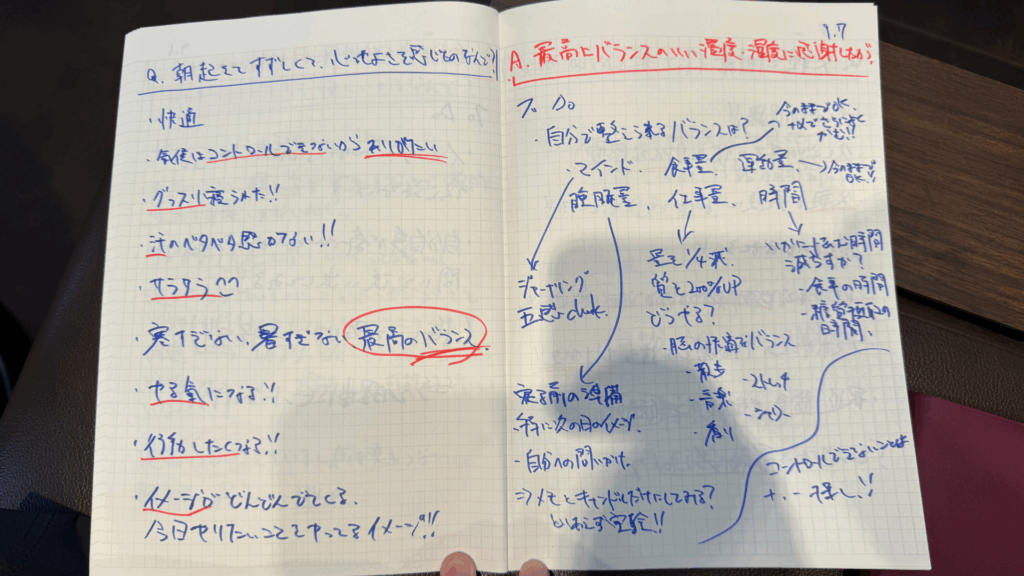 Q. 朝起きてすずしくて、心地よさを感じるのなんで?!
・快適
・気候はコントロールできないからありがたい
・グッスリ寝られた!!
・汗のベタベタ感がない!!
・サラサラ^^
・寒すぎない、暑すぎない 最高のバランス
・やる気になる!!
・行動したくなる!!
・イメージがどんどんでてくる。
今日やりたいことをやってるイメージが!!
1.7
A. 最高にバランスのいい温度・湿度に感謝しながら
To Do
・自分で整こう来るバランスは?
今のままでOK.
・マインド. 食事量、運動量
→今のままでOK!!
睡眠量、仕事量、時間
ジャーナリング
五感check.
量を1/4減.
質を200%UP
どうする?
・脳の休憩もバランス
・散歩
・音楽
・香り
・ストレッチ
・シャワー
いかにートムだ時間
減らすか?
・食事の時間
時間.
寝る前の準備
特に次の日のイメージ.
・自分への問いかけ.
⇒メモとキャンドルだけにしてみる?
とりあえず実験!!
コントロールできないことは
+、- 探し!!